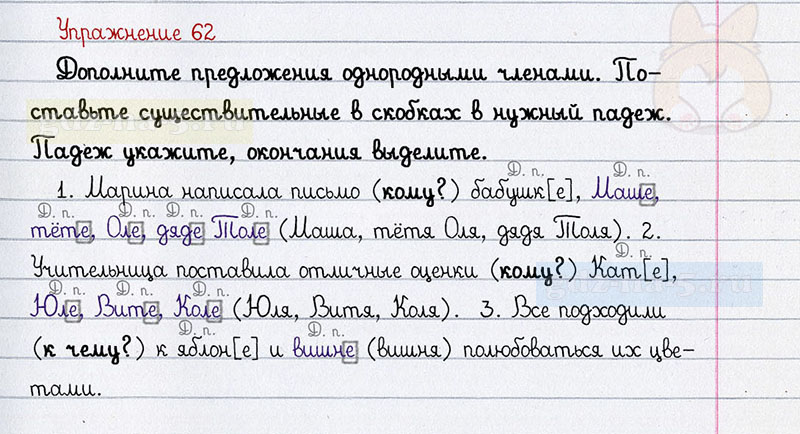 Упражнение 62
Дополните предложения однородными членами. По-
ставьте существительные в скобках в нужный падеж.
Падеж укажите, окончания выделите.
Д. п.
1. Марина написала письмо (кому?) бабушк[е], Маше,
Д. п. Д. п. Д. п. Д. п.
тёте, Оле, дяде Толе (Маша, тётя Оля, дядя Толя). 2.
Д. п.
Учительница поставила отличные оценки (кому?) Кат[е],
Д. п. Д. п. Д. п.
Юле, Вите, Коле (Юля, Витя, Коля). 3. Все подходили
Д. п. Д. п.
(к чему?) к яблон[е] и вишне (вишня) полюбоваться их цве-
тами.